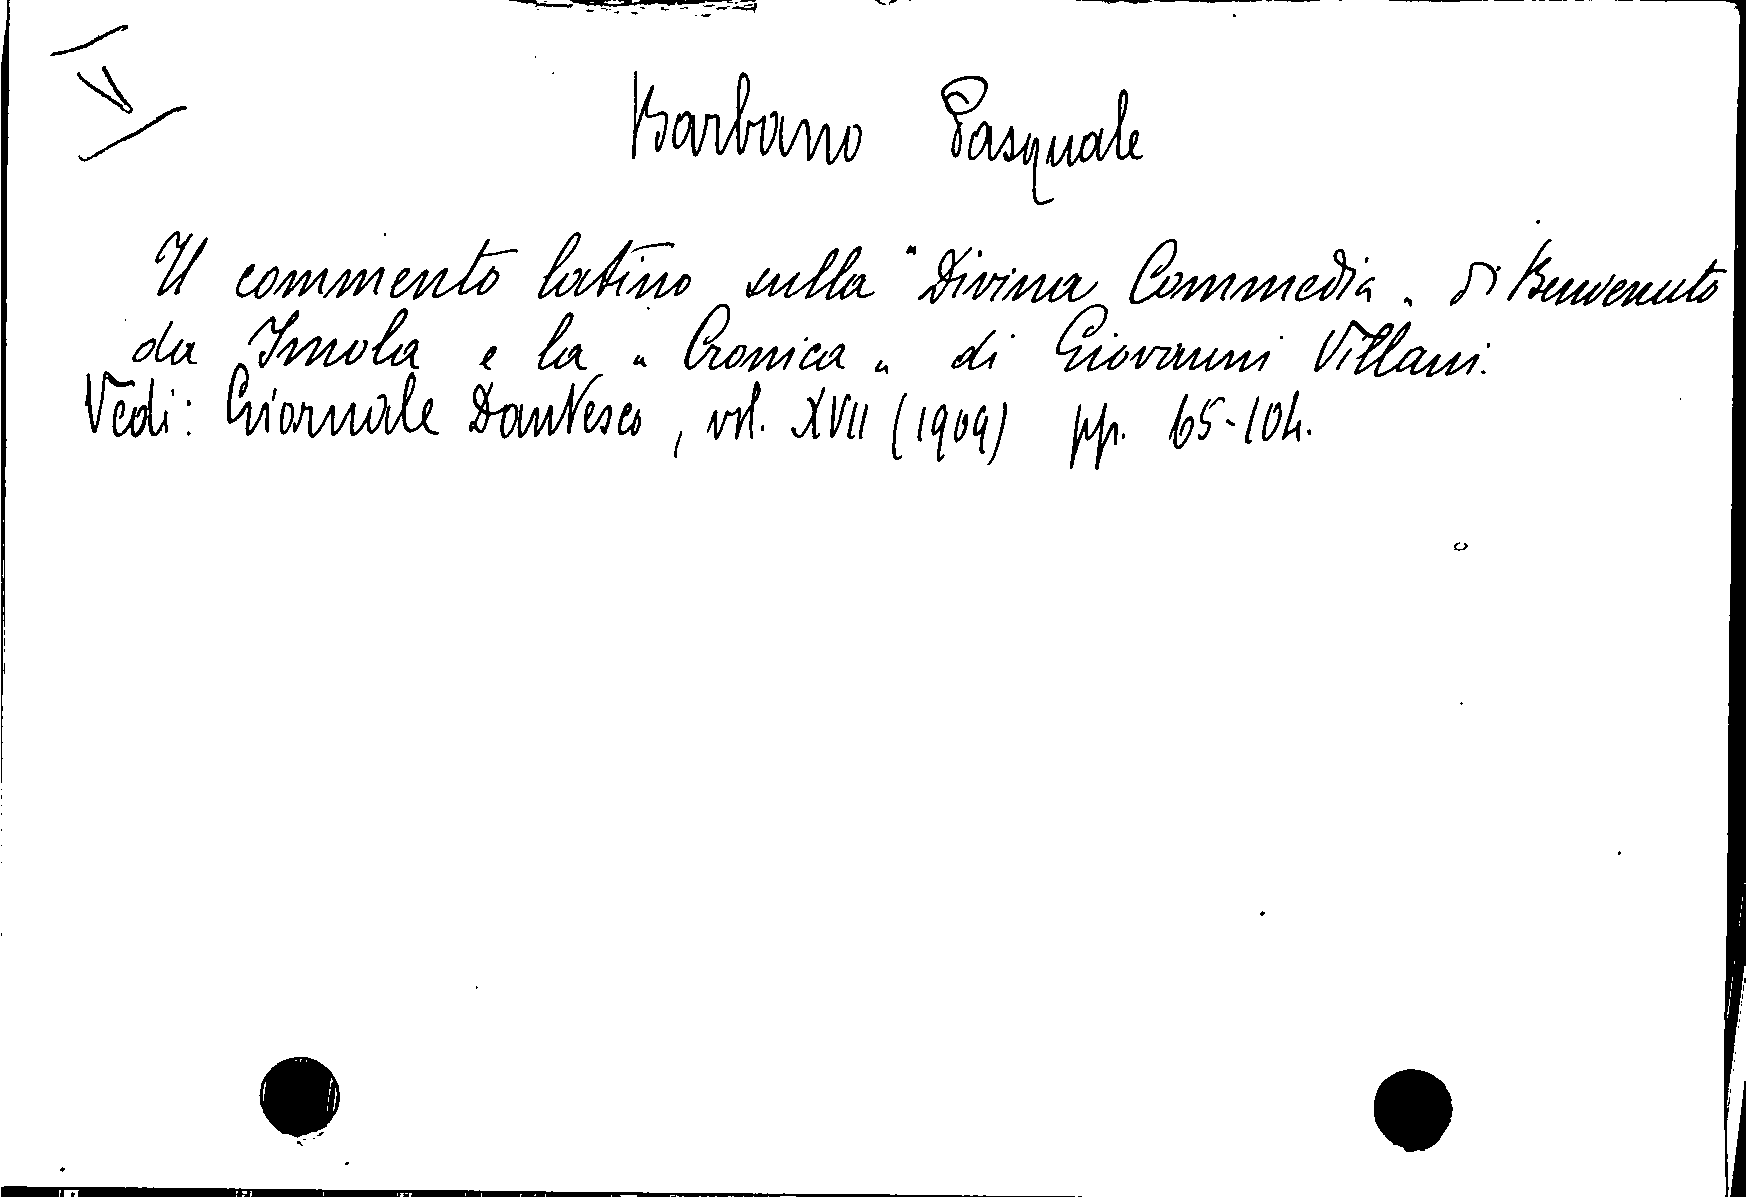 V
Barbano Pasquale
Il commento latino sulla "Divina Commedia" di Benvenuto
da Imola e la "Cronica" di Giovanni Villani.
Vedi: Giornale Dantesco, vol. XVII (1909) pp. 65-104.